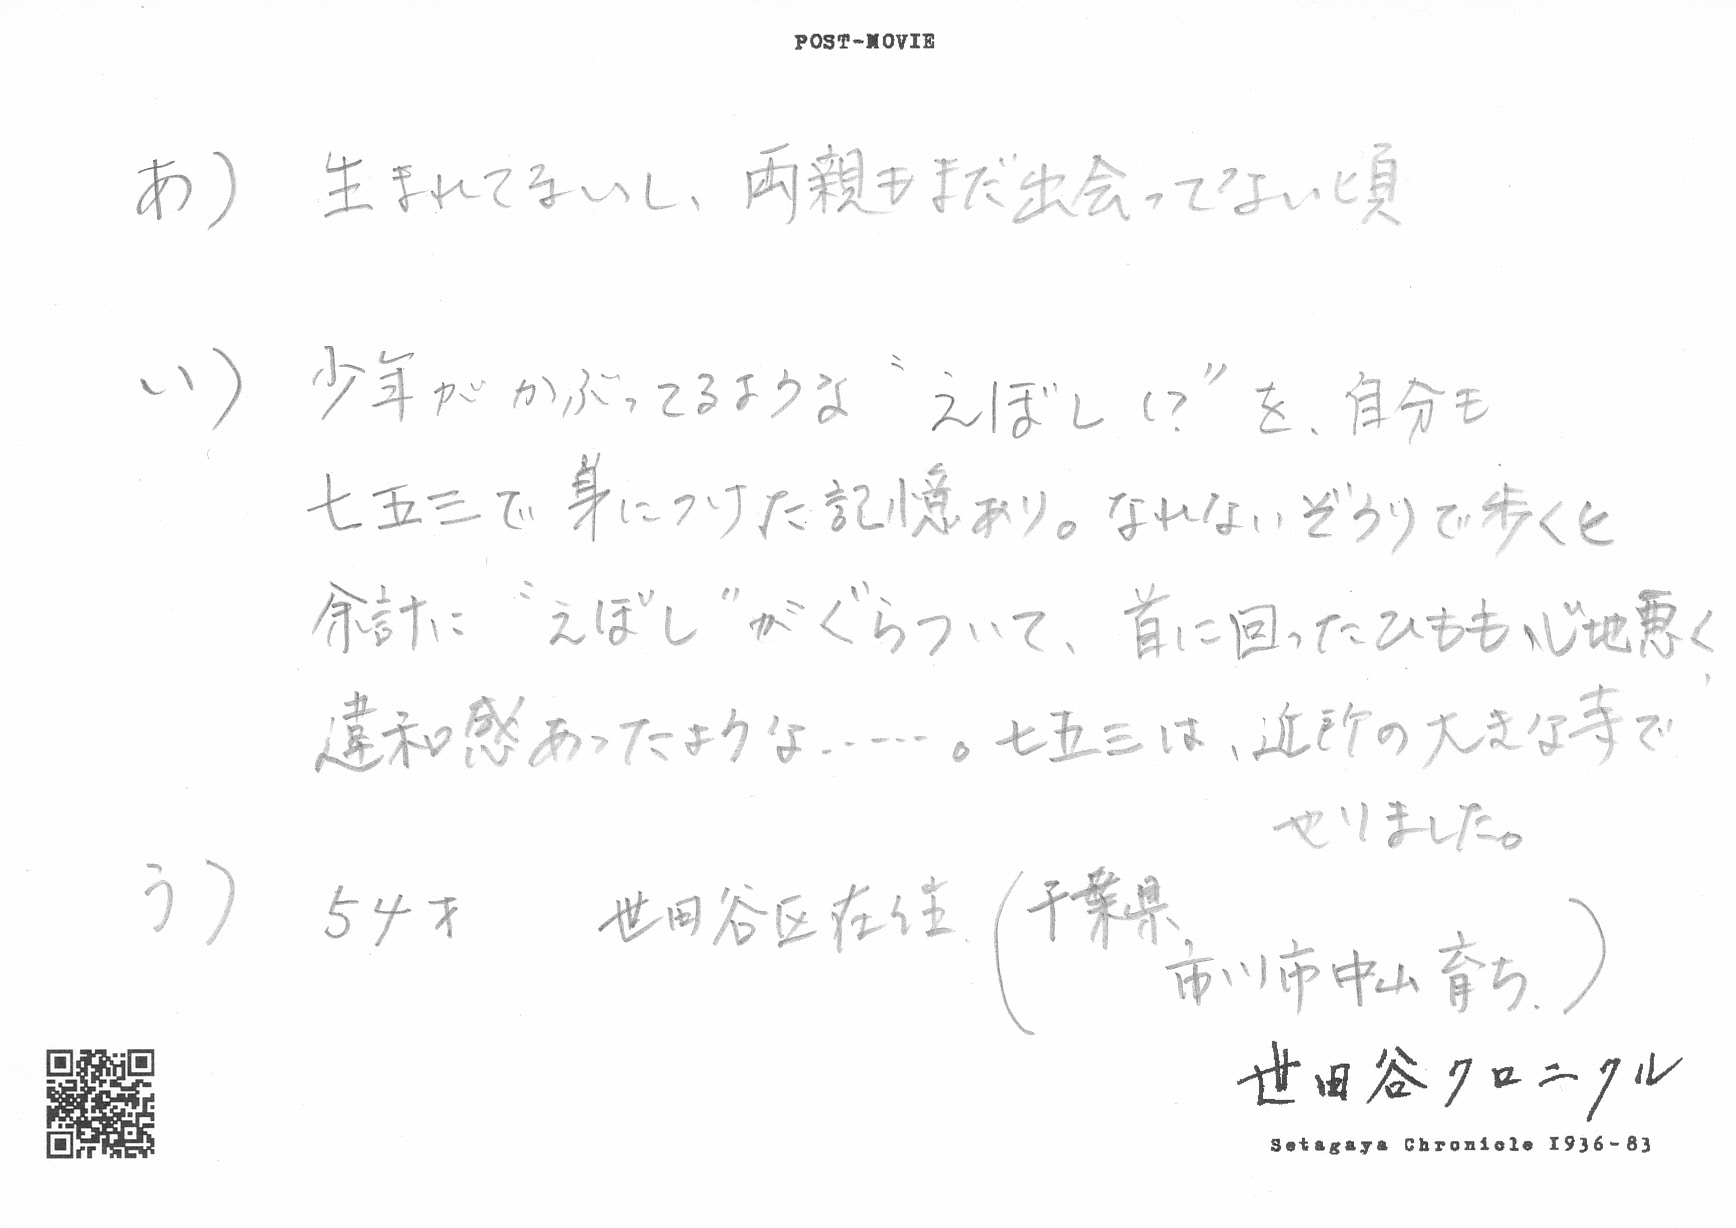 POST-MOVIE
あ) 生まれてないし、両親もまだ出会ってない頃
い) 少年がかぶってるような〝えぼし!?〟を、自分も
七五三で身につけた記憶あり。なれないぞうりで歩くと
余計に〝えぼし〟がぐらついて、首に回ったひもも心地悪く、
違和感あったような……。七五三は、近所の大きな寺で
やりました。
う) 54才 世田谷区在住.(千葉県,
市川市中山育ち.)
世田谷クロニクル
Setagaya Chronicle 1936-83